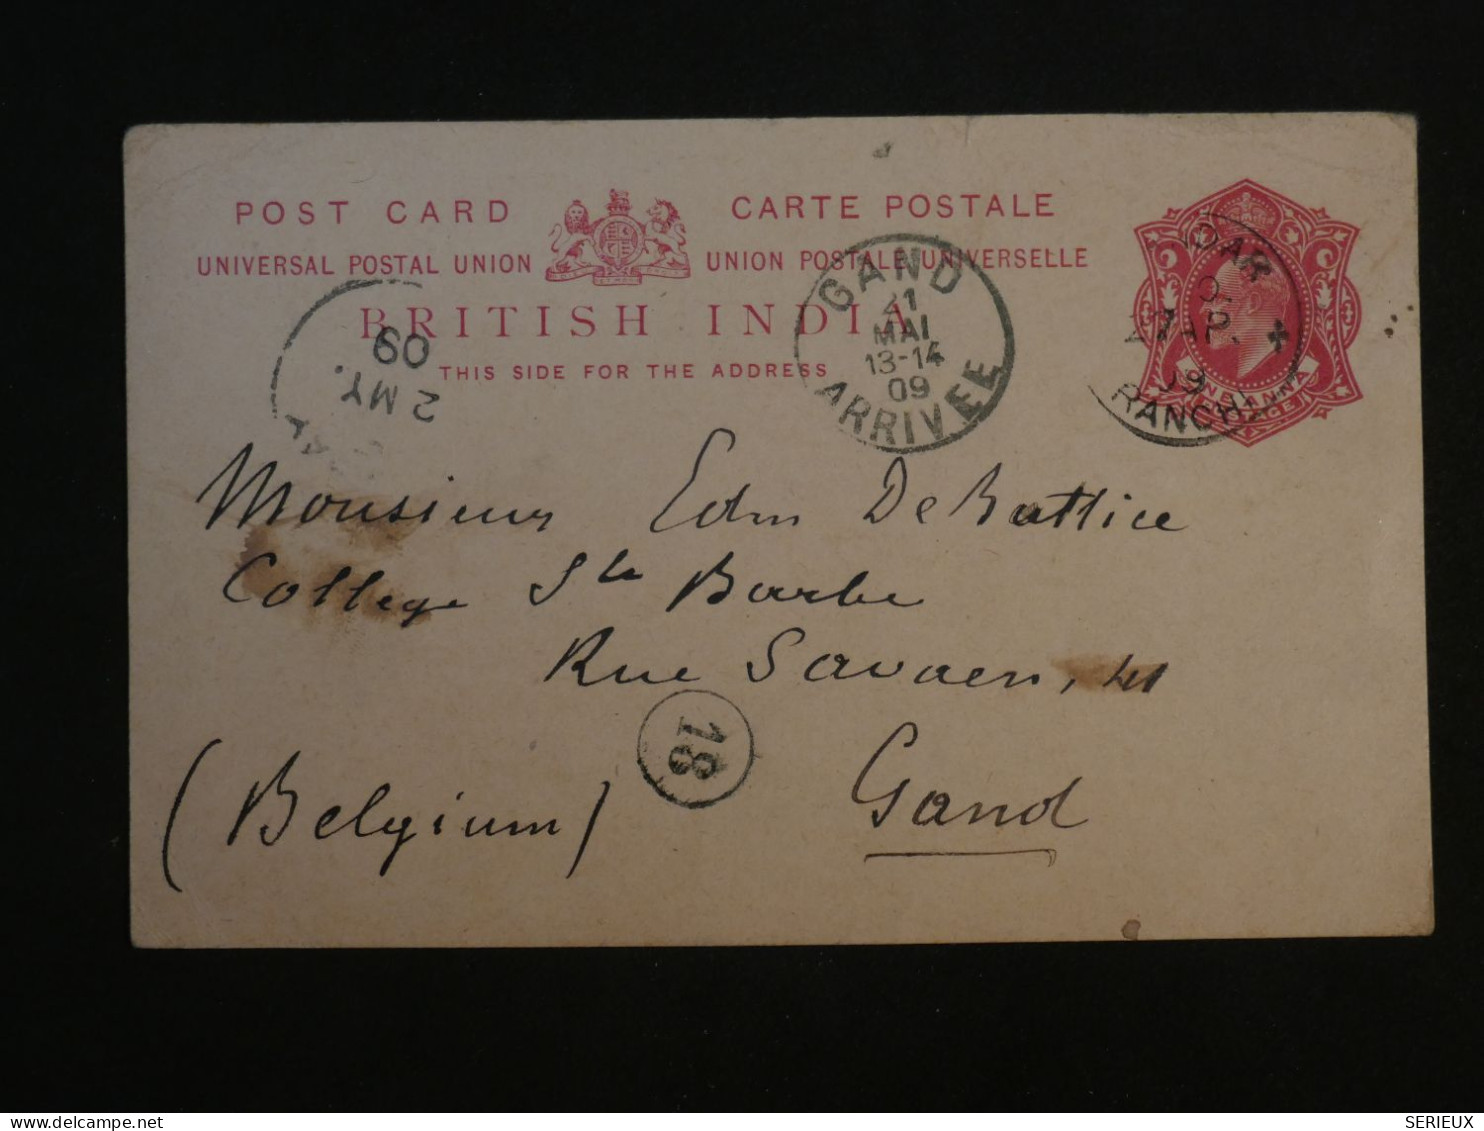 POST CARD CARTE POSTALE
UNIVERSAL POSTAL UNION UNION POSTALE UNIVERSELLE
BRITISH INDIA
THIS SIDE FOR THE ADDRESS
ONE ANNA
2 MY.
09
GAND
21
MAI
13-14
09
ARRIVÉE
AP.
09
RANCHI
Monsieur Edm De Battice
College Ste Barbe
Rue Savaen, 41
18
(Belgium) Gand
delcampe.net
SERIEUX